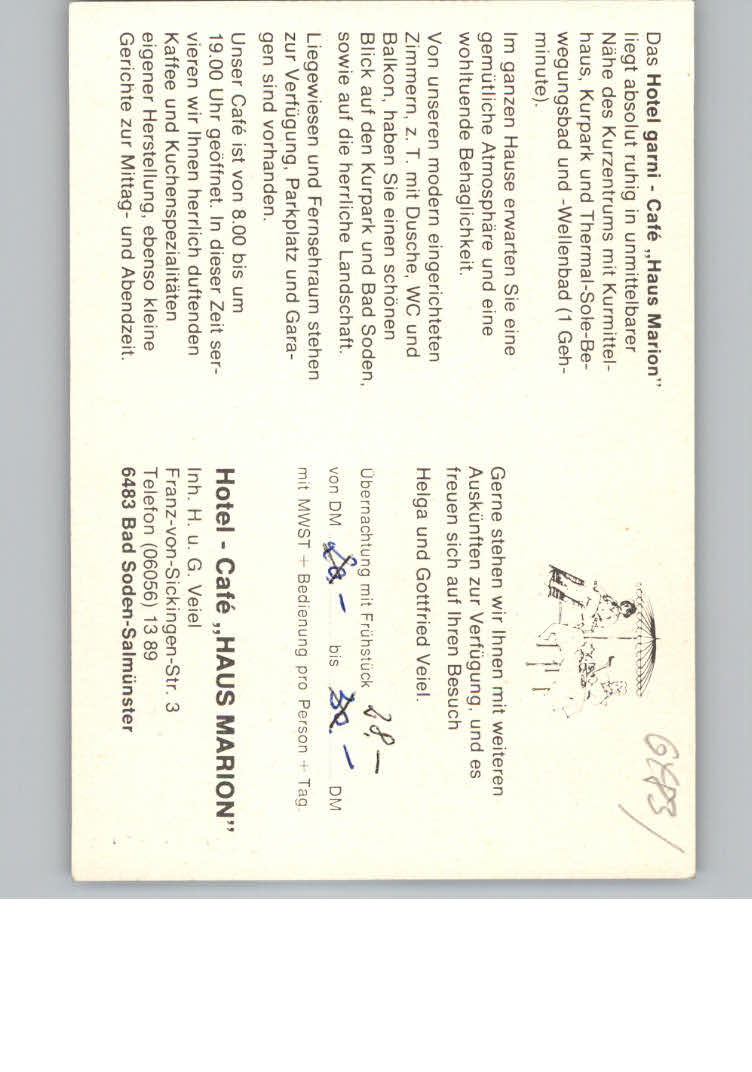 Das Hotel garni - Café „Haus Marion”
liegt absolut ruhig in unmittelbarer
Nähe des Kurzentrums mit Kurmittel-
haus, Kurpark und Thermal-Sole-Be-
wegungsbad und -Wellenbad (1 Geh-
minute).
Im ganzen Hause erwarten Sie eine
gemütliche Atmosphäre und eine
wohltuende Behaglichkeit.
Von unseren modern eingerichteten
Zimmern, z. T. mit Dusche, WC und
Balkon, haben Sie einen schönen
Blick auf den Kurpark und Bad Soden,
sowie auf die herrliche Landschaft.
Liegewiesen und Fernsehraum stehen
zur Verfügung, Parkplatz und Gara-
gen sind vorhanden.
Unser Café ist von 8.00 bis um
19.00 Uhr geöffnet. In dieser Zeit ser-
vieren wir Ihnen herrlich duftenden
Kaffee und Kuchenspezialitäten
eigener Herstellung, ebenso kleine
Gerichte zur Mittag- und Abendzeit.
6483
Gerne stehen wir Ihnen mit weiteren
Auskünften zur Verfügung, und es
freuen sich auf Ihren Besuch
Helga und Gottfried Veiel.
Übernachtung mit Frühstück 28.–
von DM – bis – DM
mit MWST + Bedienung pro Person + Tag.
Hotel - Café „HAUS MARION”
Inh. H. u. G. Veiel
Franz-von-Sickingen-Str. 3
Telefon (06056) 13 89
6483 Bad Soden-Salmünster